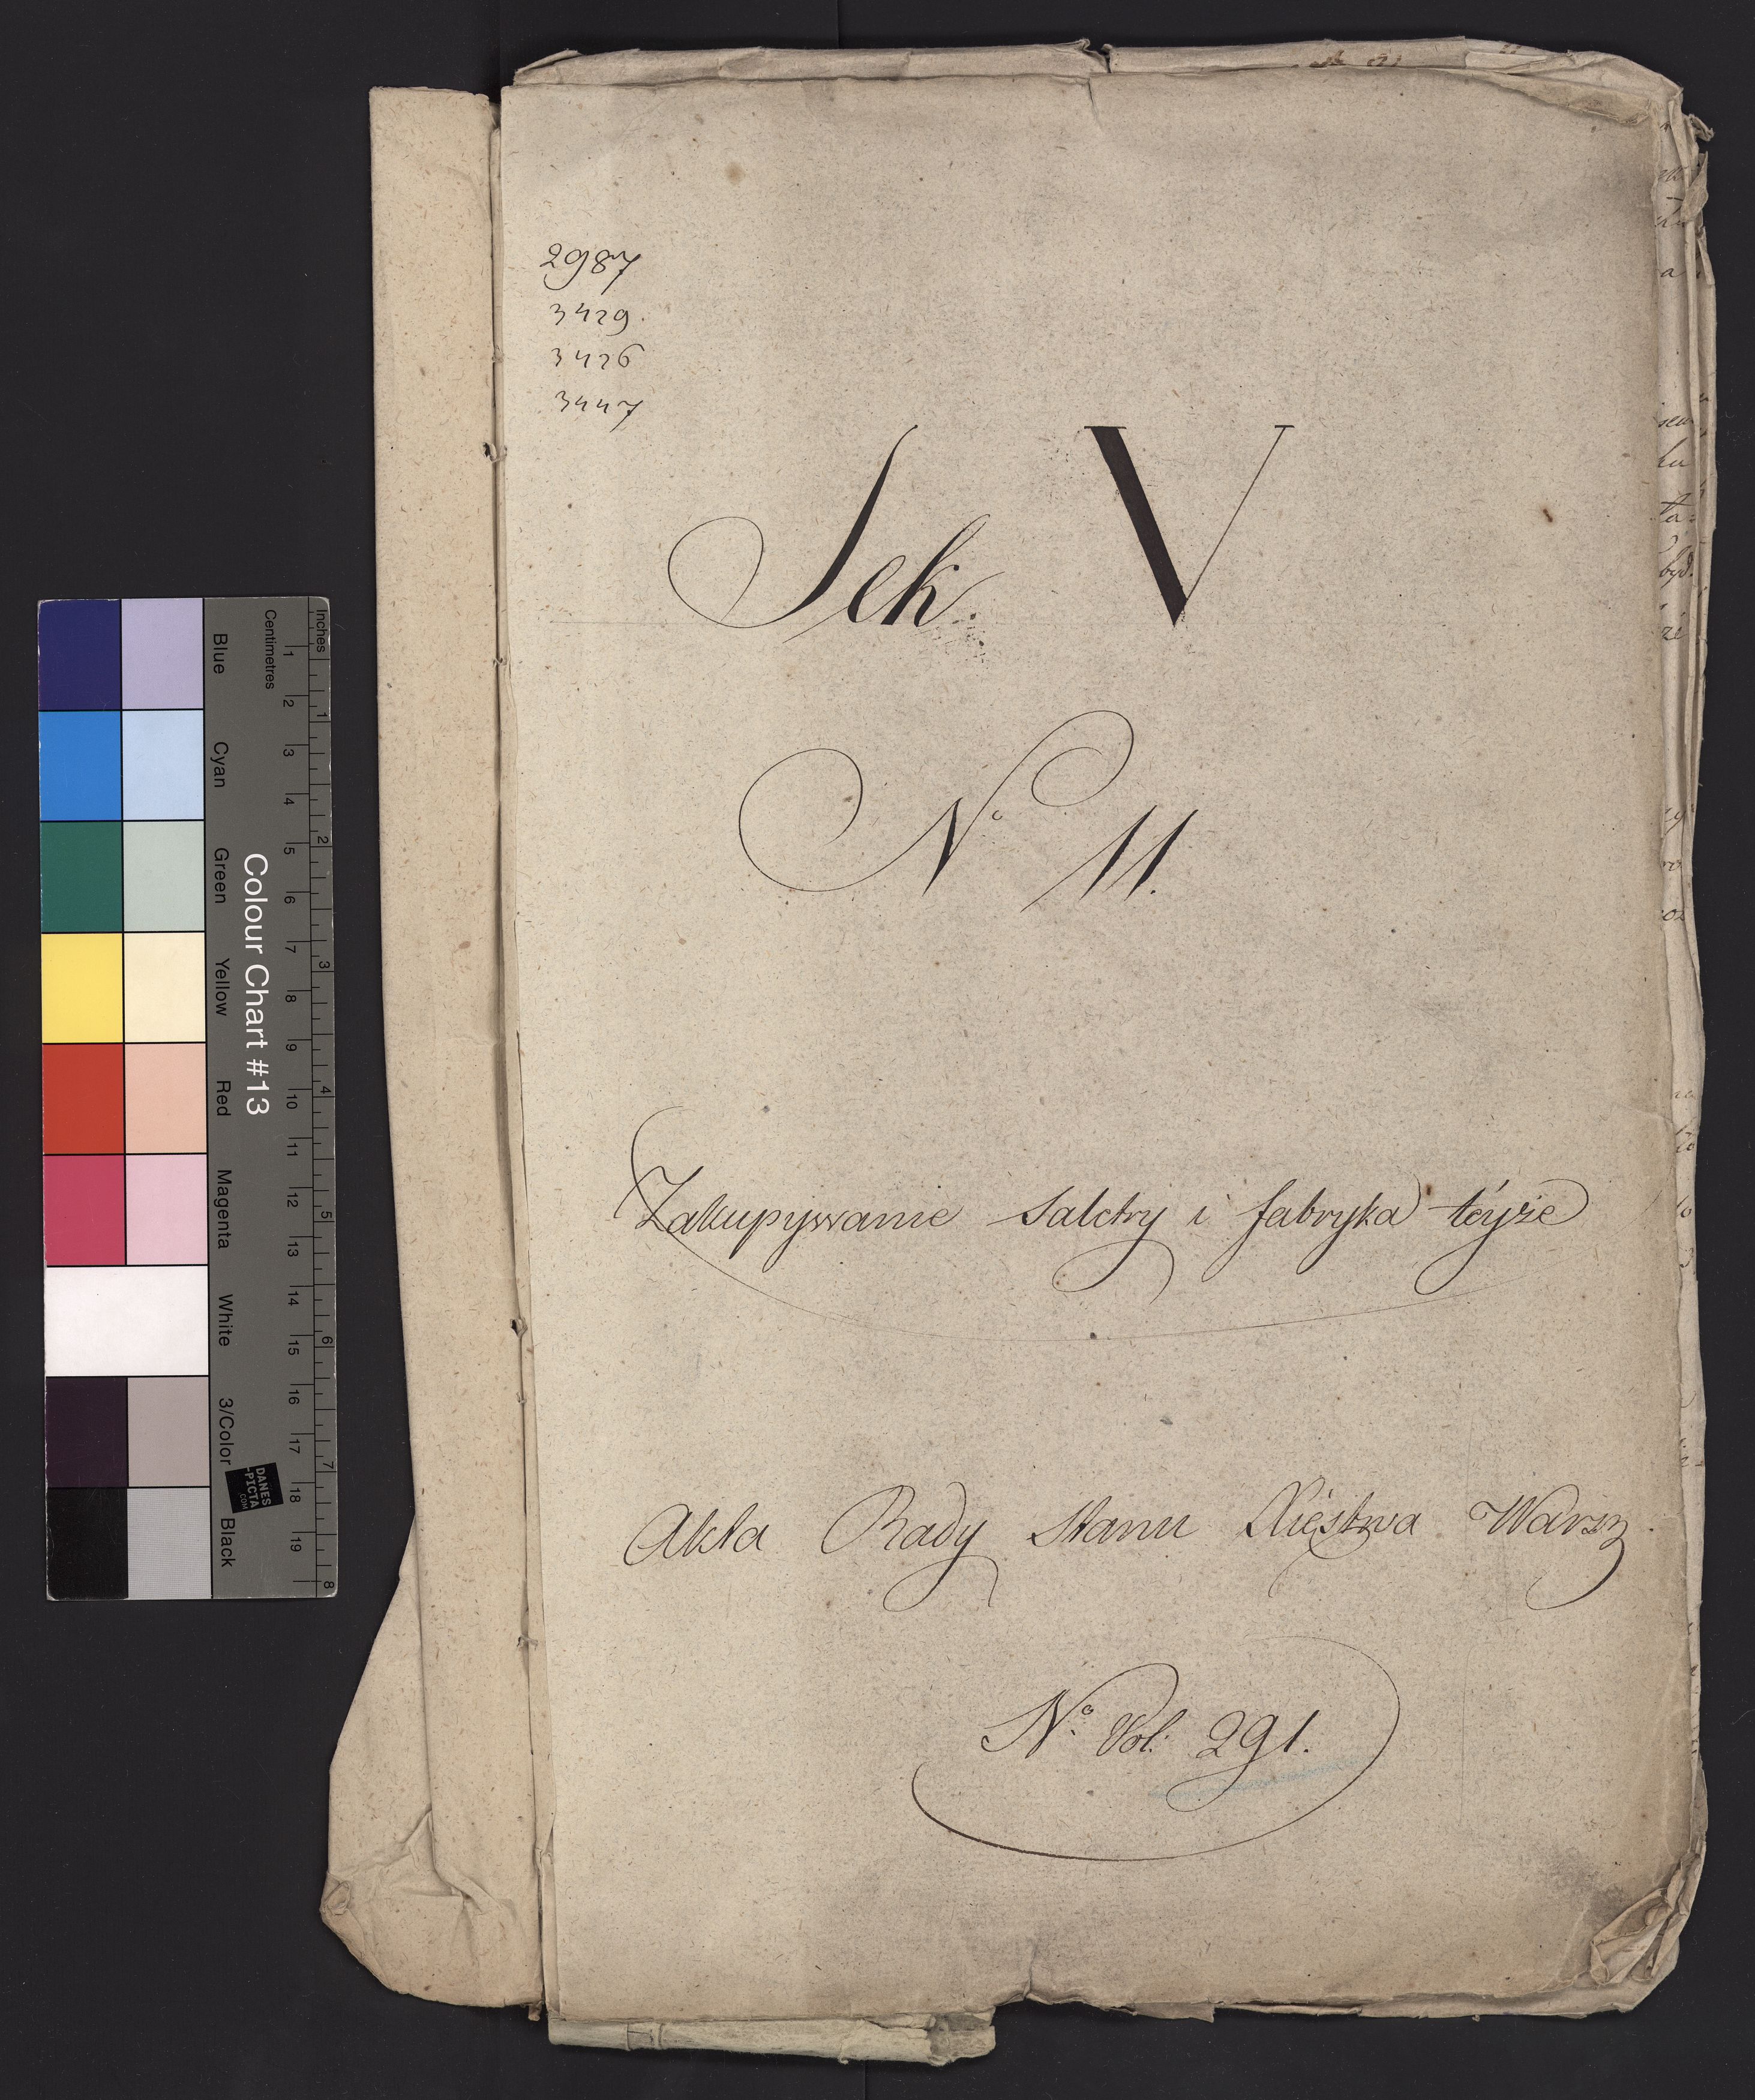 2987
3429.
3426
3447
Sek. V
N° 11.
Zakupywanie saletry i fabryka téyże
Akta Rady Stanu Xięstwa Warsz.
N° Vol: 291.
Inches
Centimetres
1 2 3 4 5 6 7 8 9 10 11 12 13 14 15 16 17 18 19
1 2 3 4 5 6 7 8
Colour Chart #13
Blue Cyan Green Yellow Red Magenta White 3/Color Black
DANES
-PICTA
.COM